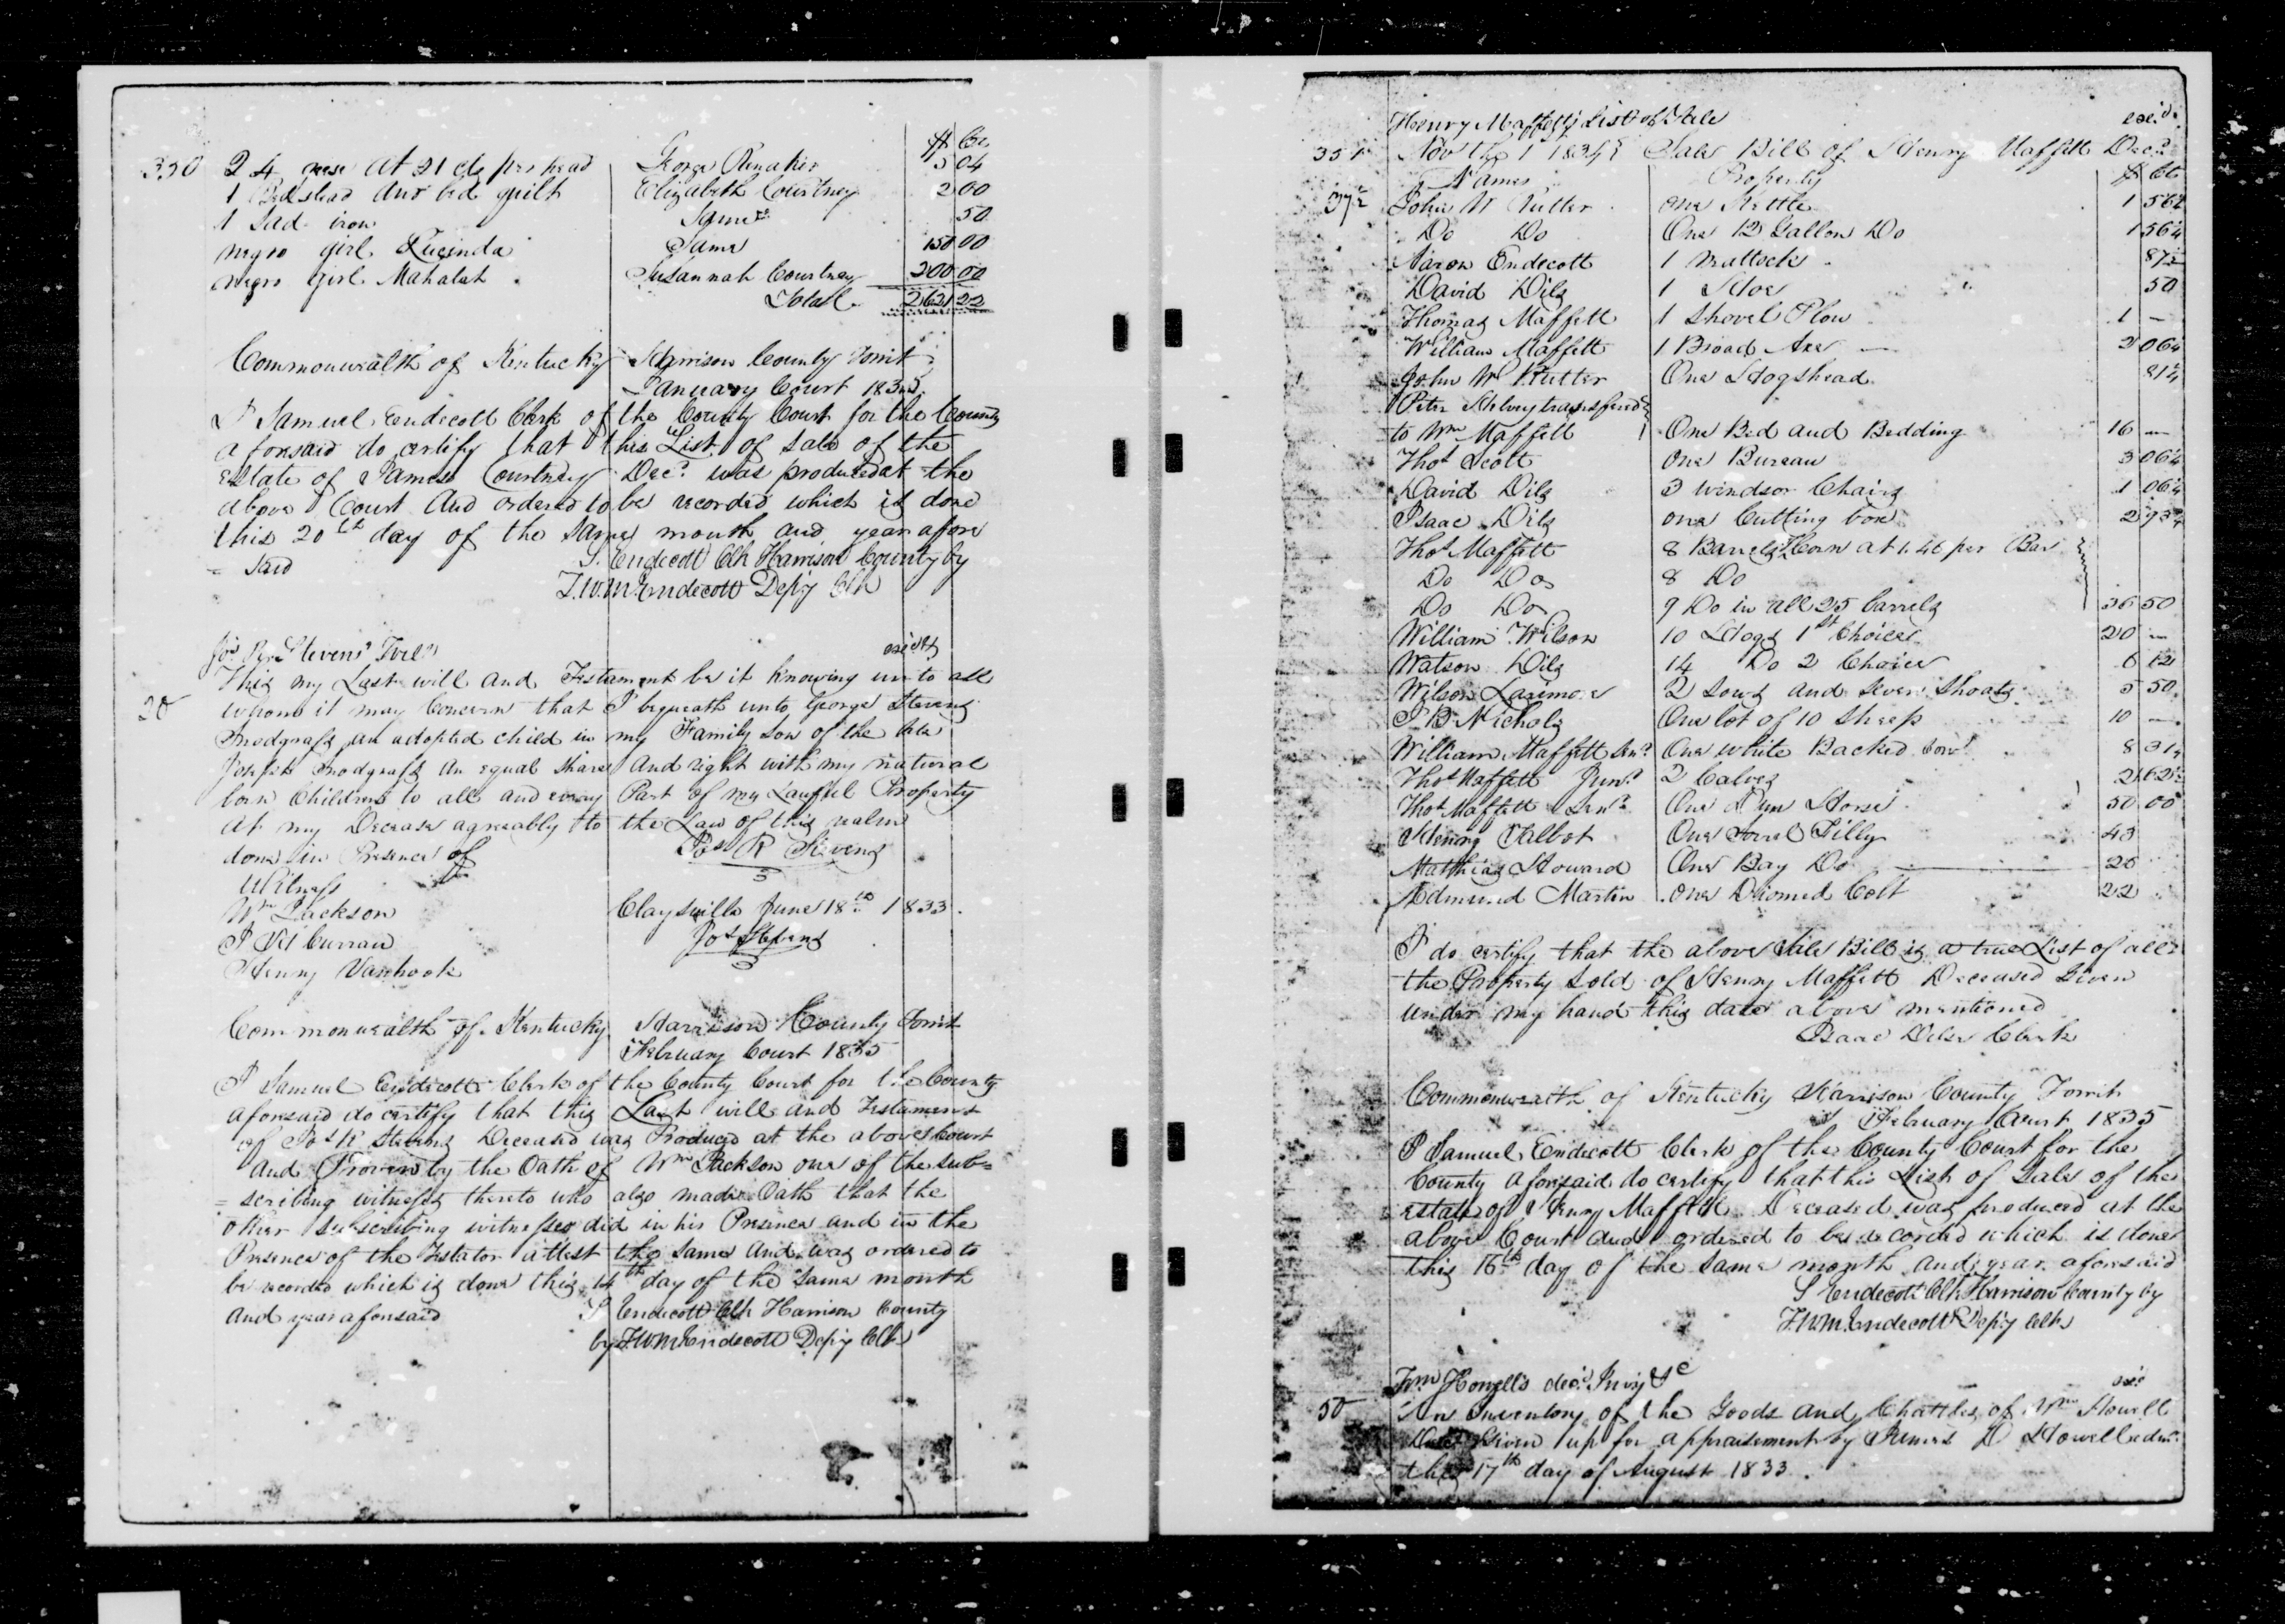 $ Cts
350 24 geese at 21 cts per head George Renaker 5 04
1 Bedstead and bed quilt Elizabeth Courtney 2 00
1 Sad iron Same 50
negro girl Lucinda Same 150 00
negro girl Mahalah Susannah Courtney 200 00
Total 2621 22
Commonwealth of Kentucky Harrison County Towit
January Court 1835
I Samuel Endecott Clerk of the County Court for the County
aforesaid do certify that this List of sale of the
Estate of James Courtney Decd. was produced at the
above Court And ordered to be recorded which is done
this 20th day of the Same month and year afore
= said S. Endecott Clk Harrison County by
T.W.M. Endecott Depy Clk
Jos. R. Stevens' Will
This my Last will and Testament be it knowing un to all
whom it may Concern that I bequeath unto George Stevens
Snodgrass an adopted child in my Family Son of the late
Joseph Snodgrass An equal Share And right with my natural
born Children to all and every Part of my Lawful Property
at my Decease agreeably to the Law of this realm
done in Presence of Jos R Stevens
Witness
Wm Jackson Claysville June 18th 1833.
Jos Stevens
Henry Vanhook
Commonwealth of Kentucky Harrison County Towit
February Court 1835
I Samuel Endecott Clerk of the County Court for the County
aforesaid do certify that this Last will and Testament
of Jos R Stevens Deceased was Produced at the above Court
And Proven by the Oath of Wm Jackson one of the sub=
= scribing witnesses thereto who also made Oath that the
other subscribing witnesses did in his Presence and in the
Presence of the Testator attest the same And was ordered to
be recorded which is done this 14th day of the Same month
And year aforesaid S Endecott Clk Harrison County
by T.W.M. Endecott Depy Clk
Henry Maffett's List of Sale
351 Nov the 1 1834 Sale Bill of Henry Maffett Decd.
Names Property $ Cts
37½ John W Rutter one Kettle 1 56¼
Do Do One 12 Gallon Do 1 56¼
Aaron Endecott 1 Mattock 87½
David Dils 1 Hoe 50
Thomas Maffett 1 Shovel Plow 1 —
William Maffett 1 Broad Axe — 2 06¼
John W Rutter One Hogshead 81¼
Peter Shelvey transfered
to Wm Maffett One Bed and Bedding 16 —
Thos Scott One Bureau 3 06¼
David Dils 3 windsor Chairs 1 06¼
Isaac Dils one Cutting box 2 93¾
Thos Maffett 8 Barrels Corn at 1.46 per Bar
Do Do 8 Do
Do Do 9 Do in all 25 barrels 36 50
William Wilson 10 Hogs 1st Choice 20 —
Watson Dils 14 Do 2 Choice 6 12
Wilson Larimore 2 Sows and Seven Shoats 5 50
J B Nichols One lot of 10 Sheep 10 —
William Maffett Senr. One white Backed Cow 8 31¼
Thos Maffett Junr. 2 Calves 2 62½
Thos Maffett Senr. One Dun Horse 50 00
Henry Talbot One Sorrel Filly 43
Matthias Howard One Bay Do 26
Edmund Martin One Diomed Colt 22
I do certify that the above Sale Bill is a true List of all
the Property Sold of Henry Maffett Deceased Given
under my hand this date above mentioned
Isaac Dils Clerk
Commonwealth of Kentucky Harrison County Towit
February Court 1835
I Samuel Endecott Clerk of the County Court for the
County aforesaid do certify that this List of Sale of the
estate of Henry Maffett Deceased was produced at the
above Court and ordered to be recorded which is done
this 16th day of the Same month and year aforesaid
S Endecott Clk Harrison County by
T.W.M. Endecott Depy Clk
Wm Howell's decd. Invy &c
50 An Inventory of the Goods and Chattles of Wm Howell
Decd Given up for appraisement by James D Howell adm.
this 17th day of August 1833.